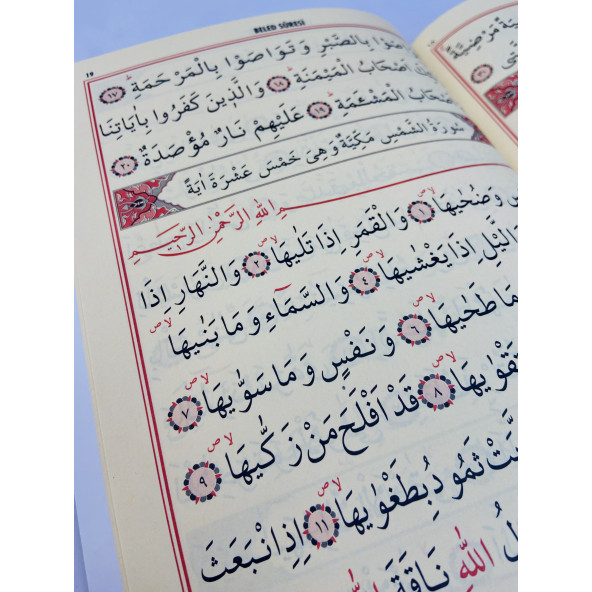 BELED SÛRESİ
١٩
بِالصَّبْرِ وَتَوَاصَوْا بِالْمَرْحَمَةِ ١٧
اَصْحَابُ الْمَيْمَنَةِ ١٨ وَالَّذِينَ كَفَرُوا بِاٰيَاتِنَا
اَصْحَابُ الْمَشْـَٔمَةِ ١٩ عَلَيْهِمْ نَارٌ مُؤْصَدَةٌ ٢٠
سُورَةُ الشَّمْسِ مَكِّيَّةٌ وَهِىَ خَمْسَ عَشْرَةَ اٰيَةً
اللّٰهِ الرَّحْمٰنِ الرَّحِيمِ
وَضُحٰيهَا ١ وَالْقَمَرِ اِذَا تَلٰيهَا ٢ وَالنَّهَارِ اِذَا
وَالَّيْلِ اِذَا يَغْشٰيهَا ٤ وَالسَّمَٓاءِ وَمَا بَنٰيهَا
مَا طَحٰيهَا ٦ وَنَفْسٍ وَمَا سَوّٰيهَا ٧
٨ قَدْ اَفْلَحَ مَنْ زَكّٰيهَا ٩
ثَمُودُ بِطَغْوٰيهَا ١١ اِذِ انْبَعَثَ
اللّٰهِ نَاقَةَ
مَرْضِيَّةً